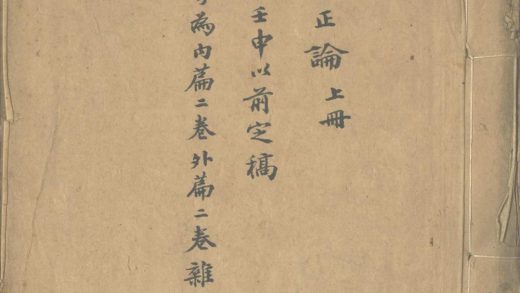 正論上冊
壬申以前定稿
為内篇二卷外篇二卷雜